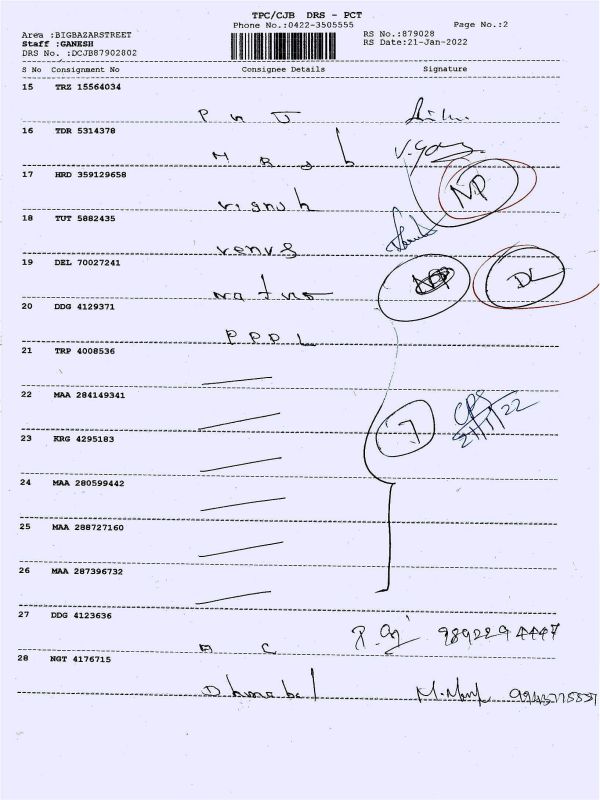 TPC/CJB DRS - PCT
Phone No.:0422-3505555 Page No.:2
Area :BIGBAZARSTREET RS No.:879028
Staff :GANESH RS Date:21-Jan-2022
DRS No. :DCJB87902802
S No Consignment No Consignee Details Signature
15 TRZ 15564034
16 TDR 5314378
V.
17 HRD 359129658
NP
Vignuh
18 TUT 5882435
venus
19 DEL 70027241
DL
20 DDG 4129371
PPPL
21 TRP 4008536
22 MAA 284149341
23 KRG 4295183
21/1/22
24 MAA 280599442
25 MAA 288727160
26 MAA 287396732
27 DDG 4123636
A C
28 NGT 4176715